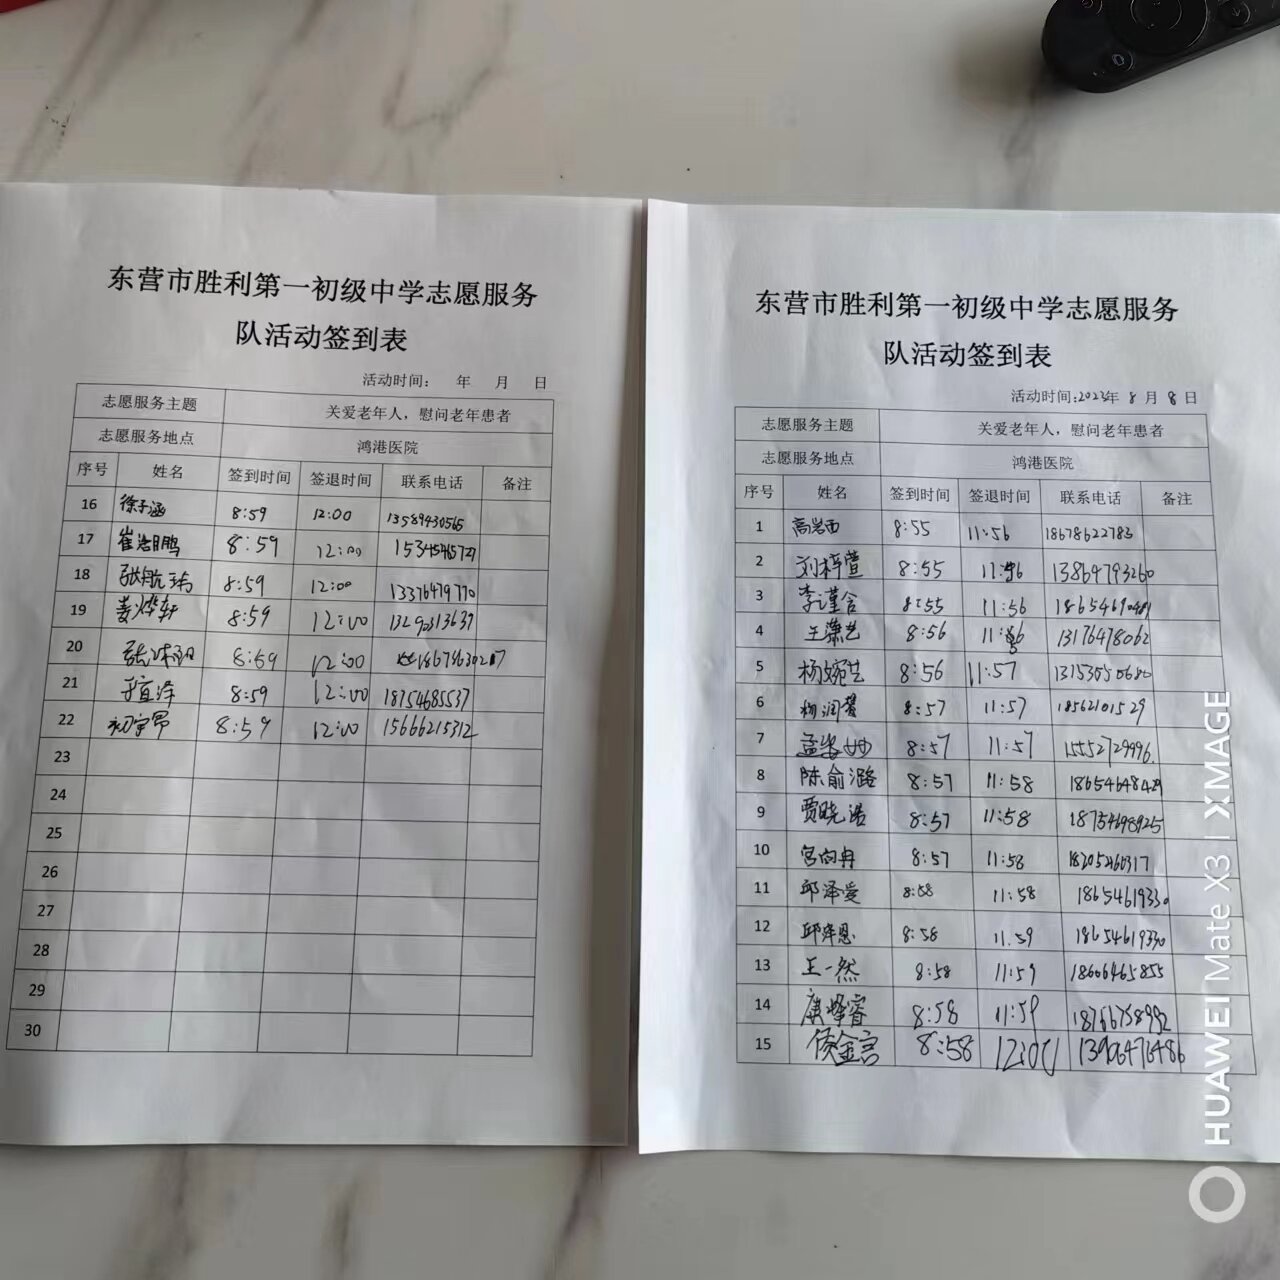 东营市胜利第一初级中学志愿服务
队活动签到表
活动时间： 年 月 日
志愿服务主题 关爱老年人，慰问老年患者
志愿服务地点 鸿港医院
序号 姓名 签到时间 签退时间 联系电话 备注
16 徐子涵 8:59 12:00 13589430565
17 崔浩鹏 8:59 12:00
18 张航玮 8:59 12:00 13376479770
19 姜烨轩 8:59 12:00
20 8:59 12:00
21 于宜泽 8:59 12:00 18754685537
22 初宇昂 8:59 12:00 15666215312
23
24
25
26
27
28
29
30
东营市胜利第一初级中学志愿服务
队活动签到表
活动时间:2023年 8 月 8 日
志愿服务主题 关爱老年人，慰问老年患者
志愿服务地点 鸿港医院
序号 姓名 签到时间 签退时间 联系电话 备注
1 高岩西 8:55 11:56 18678622783
2 刘梓萱 8:55 11:56 13864793260
3 李谨含 8:55 11:56
4 王潇艺 8:56 13176478062
5 杨婉艺 8:56 11:57
6 杨润馨 8:57 11:57 18562101529
7 8:57 11:57 15552729996
8 陈俞潞 8:57 11:58 18654648429
9 贾晓浩 8:57 11:58 18754698925
10 宫向冉 8:57 11:58 18205460317
11 邱泽爱 8:58 11:58 18654619330
12 邱泽恩 8:58 11.59 18654619330
13 王一然 8:58 11:59 18606465855
14 8:58 11:59 18766758992
15 侯金言 8:58 12:00 13906476486
HUAWEI Mate X3 | XMAGE